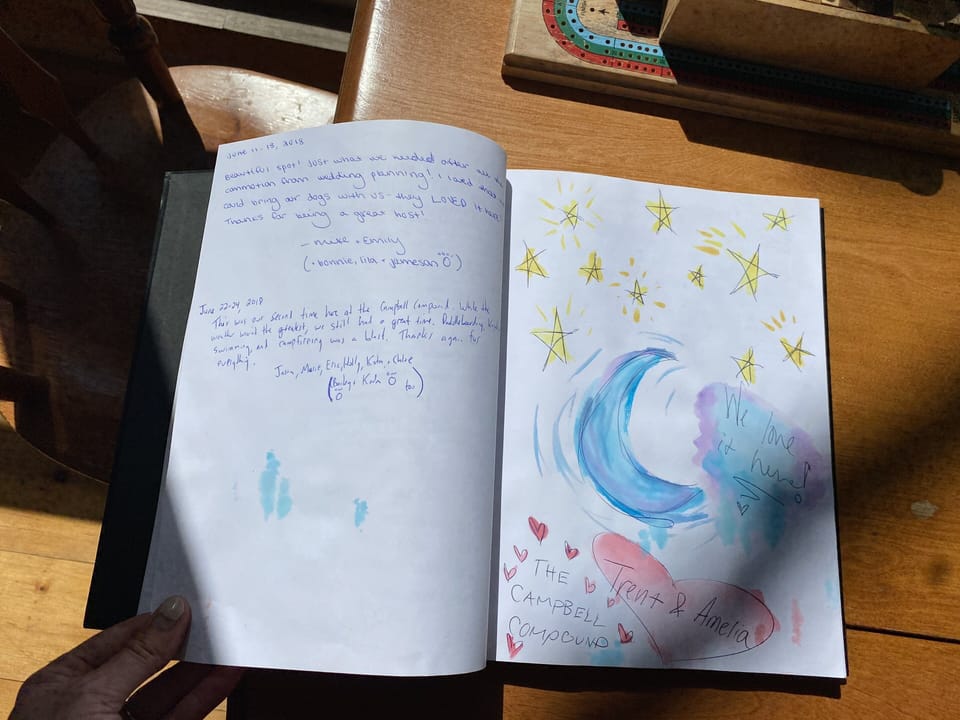 June 11-13, 2018
Beautiful spot! Just what we needed after all the
commotion from wedding planning! I loved that we
could bring our dogs with us - they LOVED it here!
Thanks for being a great host!
- Mike + Emily
(+ bonnie, lila + jameson)
June 22-24, 2018
This was our second time here at the Campbell Compound. While the
weather wasn't the greatest, we still had a great time. Paddleboarding,
swimming, and campfireing was a blast. Thanks again for
everything.
Jason, Marie, Eric, Holly, Chloe
( Koda too)
We love
it here!
THE
CAMPBELL
COMPOUND
Trent & Amelia